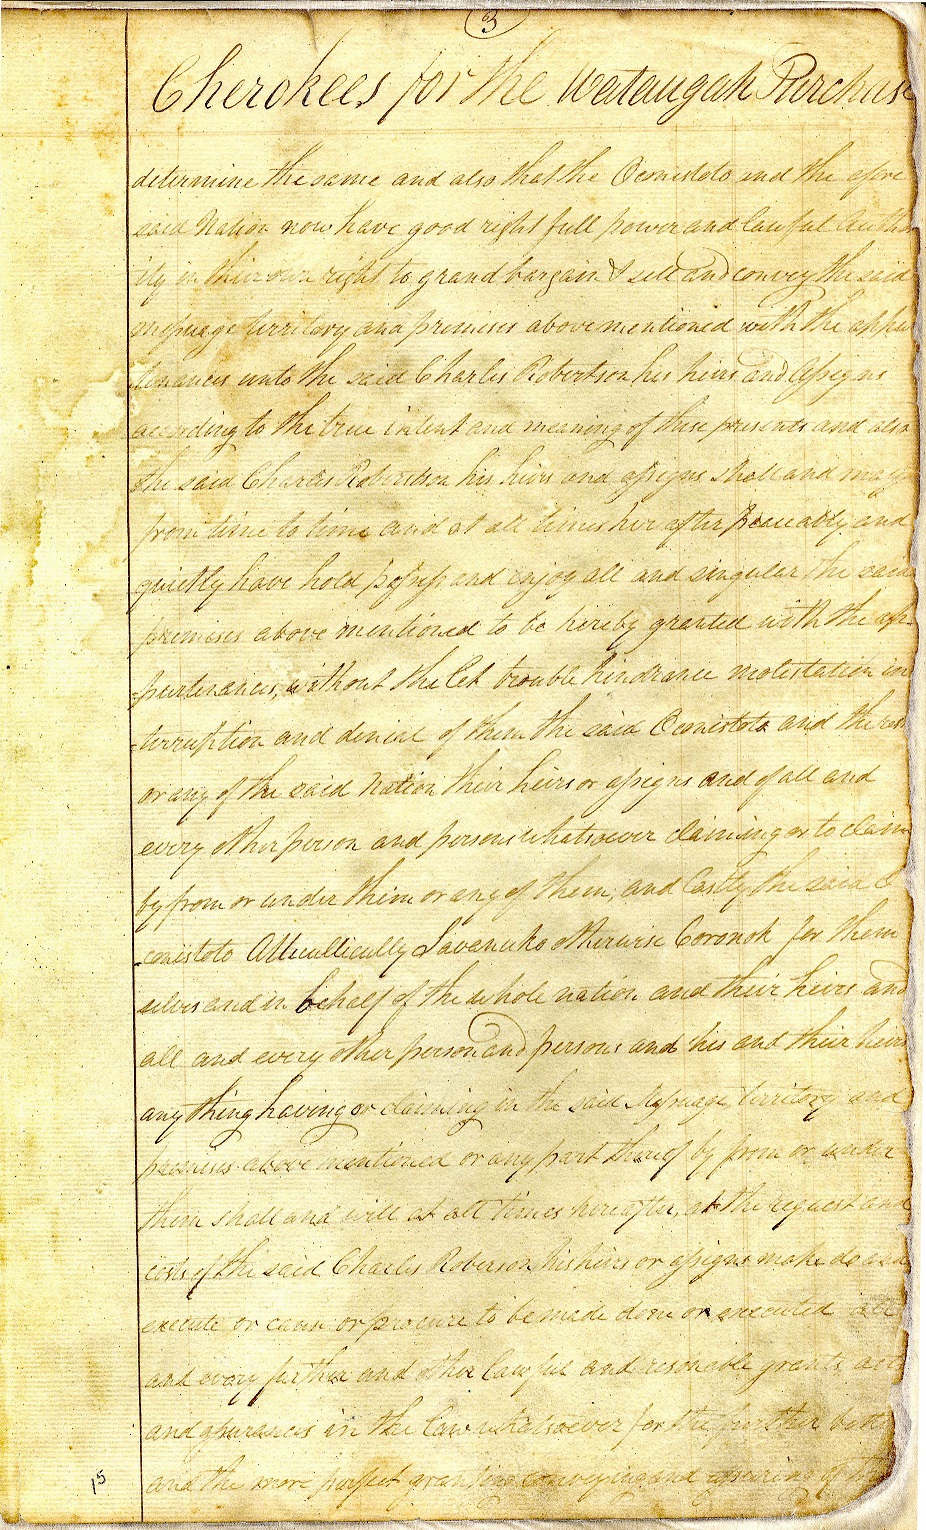 3
Cherokees for the Wataugah Purchase
determine the same and also that the Oconistoto and the afore
said Nation now have good right full power and lawful Author
ity in their own right to grand bargain & sell and convey the said
Messuage territory and premises above mentioned with the appur
tenances unto the said Charles Robertson his heirs and assigns
according to the true intent and meaning of these presents and also
the said Charles Robertson his heirs and assigns shall and may
from time to time and at all times her after peaceably and
quietly have hold possess and enjoy all and singular the said
premises above mentioned to be hereby granted with the ap-
-purtenances, without the let trouble hindrance molestation in
-terruption and denial of them the said Oconistoto and the rest
or any of the said Nation their heirs or assigns and of all and
every other person and persons whatsoever claiming or to claim
by from or under them or any of them, and Lastly the said O
-conistoto Attucullicully Savanuko otherwise Coronoh for them
selves and in behalf of the whole nation and their heirs and
all and every other person and persons and his and their heirs
any thing having or claiming in the said Messuage territory and
premises above mentioned or any part thereof by from or under
them shall and will at all times hereafter, at the request and
costs of the said Charles Roberson his heirs or assigns make do and
execute or cause or procure to be made done or executed all
and every further and other lawful and resonable grants acts
and assurances in the law whatsoever for the further better
and the more perfect granting conveying and assuring of the
15